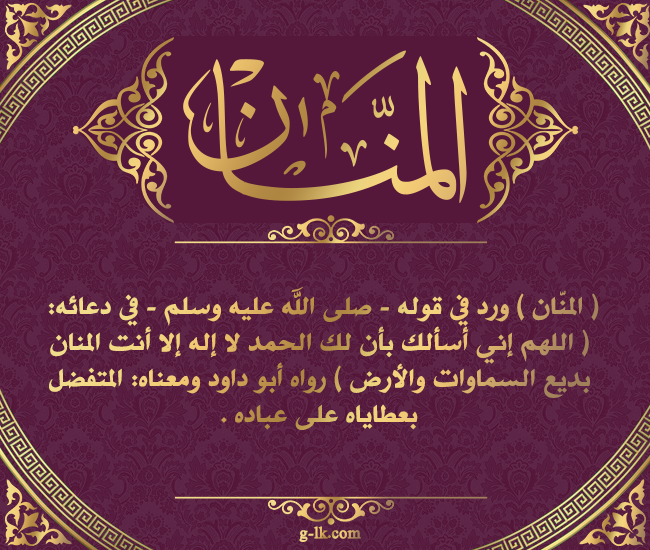 المنَّان
( المنّان ) ورد في قوله - صلى اللَّه عليه وسلم - في دعائه:
( اللهم إني أسألك بأن لك الحمد لا إله إلا أنت المنان
بديع السماوات والأرض ) رواه أبو داود ومعناه: المتفضل
بعطاياه على عباده .
g-lk.com